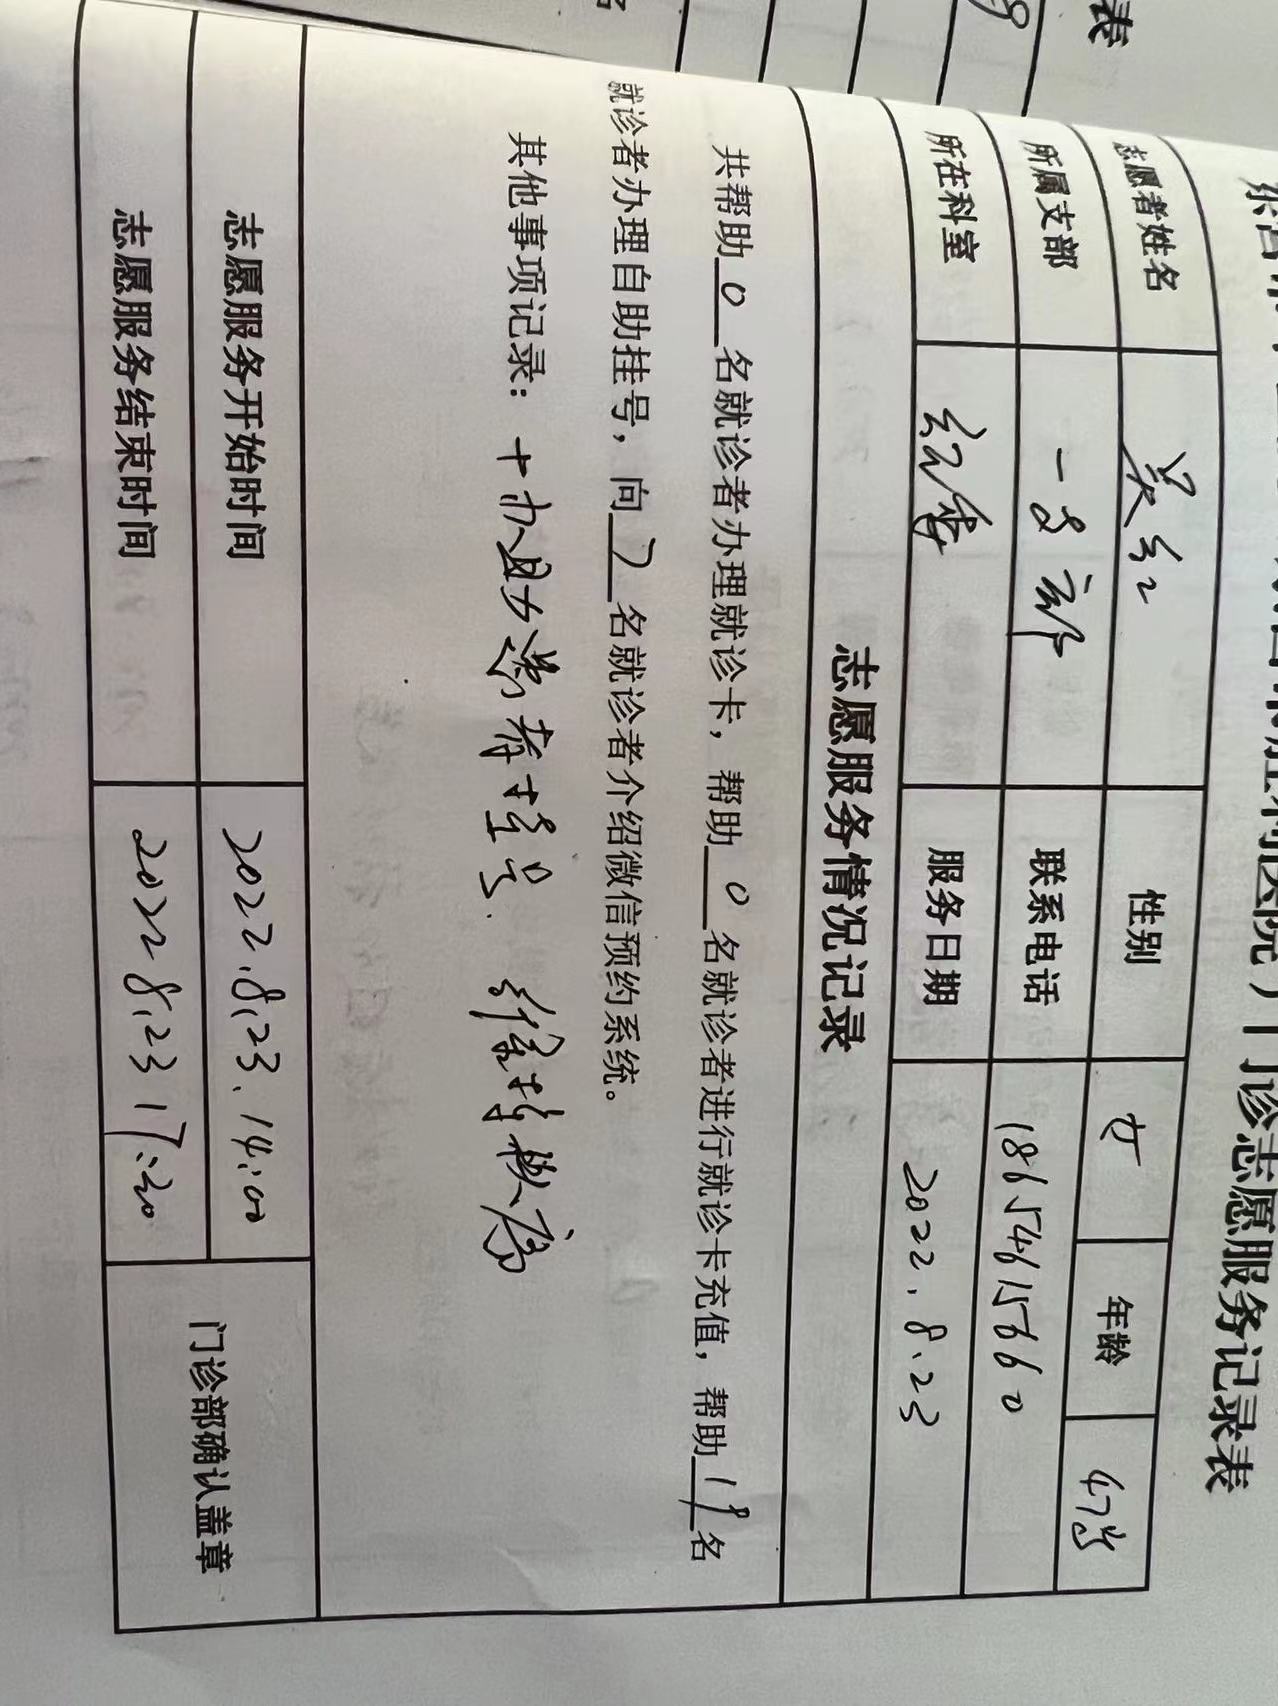 医院）门诊志愿服务记录表
志愿者姓名 吴红 性别 女 年龄 47岁
所属支部 一支部 联系电话 18654615660
所在科室 服务日期 2022.8.23
志愿服务情况记录
共帮助 0 名就诊者办理就诊卡，帮助 0 名就诊者进行就诊卡充值，帮助 19 名
就诊者办理自助挂号，向 7 名就诊者介绍微信预约系统。
其他事项记录：协助患者挂号. 维持秩序
志愿服务开始时间 2022.8.23. 14:00
志愿服务结束时间 2022 8.23 17:30
门诊部确认盖章
表